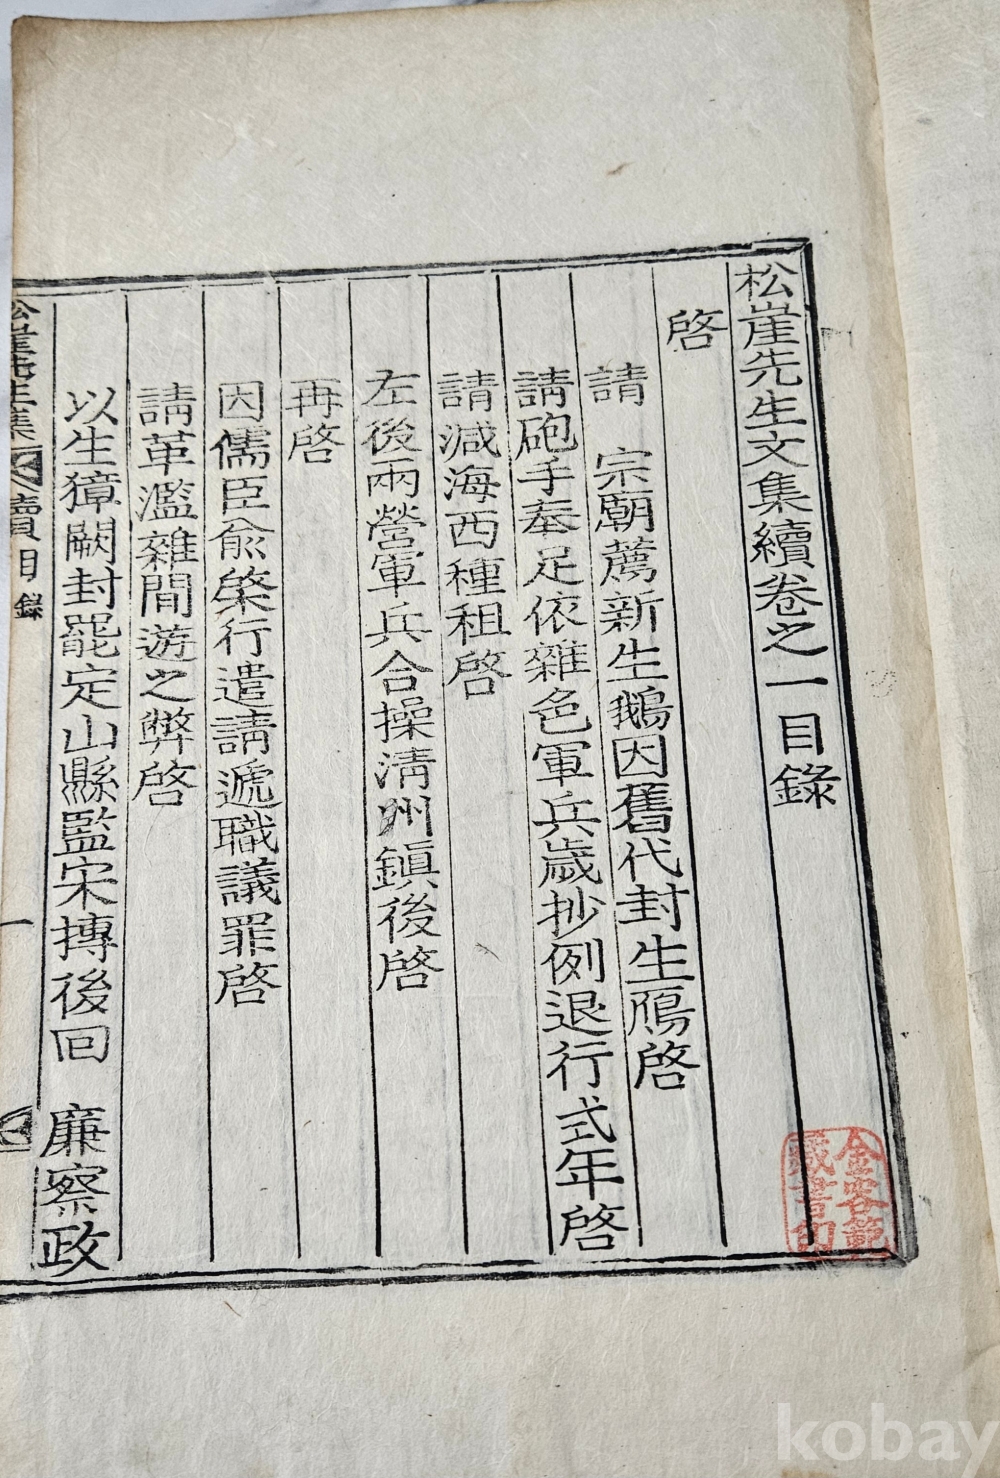 松崖先生文集續卷之一目錄
啓
請　宗廟薦新生鵝因舊代封生鴈啓
請砲手奉足依雜色軍兵歲抄例退行式年啓
請減海西種租啓
左後兩營軍兵合操淸州鎭後啓
再啓
因儒臣兪棨行遣請遞職議罪啓
請革濫雜間遊之弊啓
以生獐闕封罷定山縣監宋摶後回　廉察政
松崖先生集　續目錄　一
金容範
藏書印
kobay